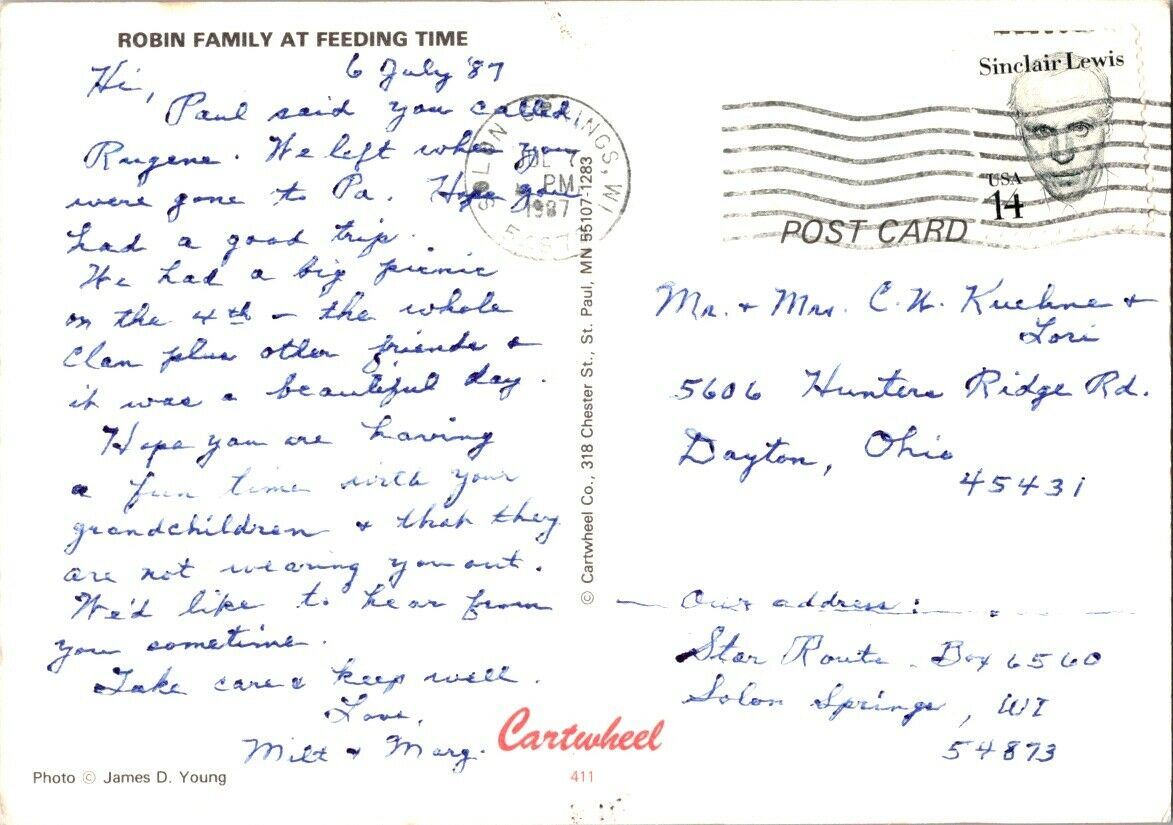 ROBIN FAMILY AT FEEDING TIME
6 July '87
Hi,
Paul said you called
Rugene. We left when you
were gone to Pa. Hope you
had a good trip.
We had a big picnic
on the 4th - the whole
Clan plus other friends &
it was a beautiful day.
Hope you are having
a fun time with your
grandchildren & that they
are not wearing you out.
We'd like to hear from
you sometime.
Take care & keep well.
Love,
Milt & Marg.
Photo © James D. Young
SOLON SPRINGS, WI
JUL 7
PM
1987
© Cartwheel Co., 318 Chester St., St. Paul, MN 55107-1283
Cartwheel
411
Sinclair Lewis
USA
14
POST CARD
Mr. & Mrs. C. W. Kuehne &
Lori
5606 Hunters Ridge Rd.
Dayton, Ohio
45431
Our address:
Star Route. Box 6560
Solon Springs, WI
54873